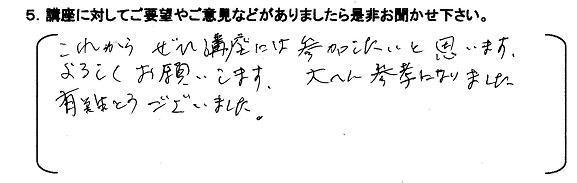 5. 講座に対してご要望やご意見などがありましたら是非お聞かせ下さい。
これから ぜひ講座には参加したいと思います.
よろしくお願いします. 大へん参考になりました
有難とうございました。